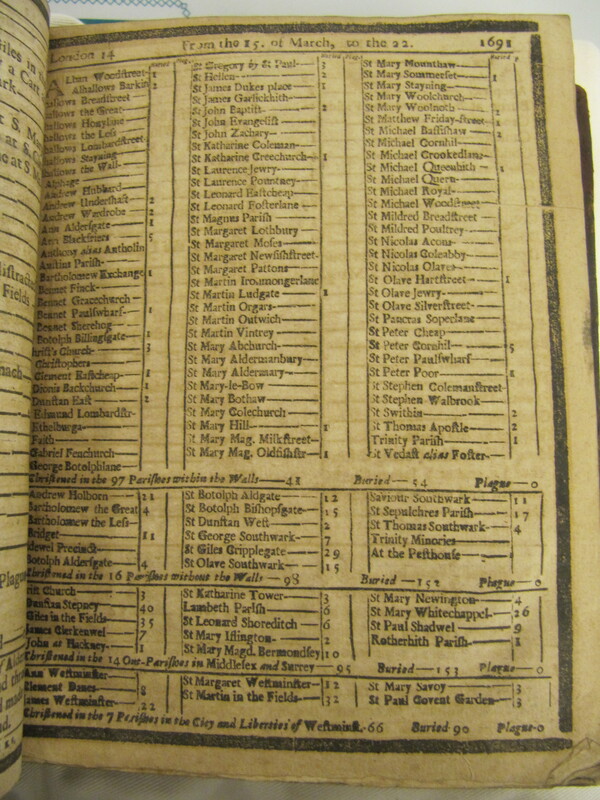 London 14 From the 15. of March, to the 22. 1691
Buried Plag.
Alban Woodstreet 1
Alhallows Barkin 2
hallows Breadstreet
hallows the Great
hallows Honylane
hallows the Less
hallows Lombardstreet
hallows Stayning
hallows the Wall
Alphage
Andrew Hubbard
Andrew Undershaft 2
Andrew Wardrobe 2
Ann Aldersgate 1
Ann Blackfriers 5
Anthony alias Antholin
Austins Parish
Bartholomew Exchange 1
Bennet Finck
Bennet Gracechurch
Bennet Paulswharf 1
Bennet Sherehog
Botolph Billingsgate 1
hrist's Church 3
Christophers
Clement Eastcheap 1
Dionis Backchurch 1
Dunstan East 2
Edmund Lombardstr-
Ethelburga
Faith
Gabriel Fenchurch
George Botolphlane
St Gregory by St Paul
St Hellen 2
St James Dukes place 1
St James Garlickhith
St John Baptist 2
St John Evangelist
St John Zachary
St Katharine Coleman
St Katharine Creechurch 1
St Laurence Jewry
St Laurence Pountney
St Leonard Eastcheap
St Leonard Fosterlane
St Magnus Parish
St Margaret Lothbury
St Margaret Moses
St Margaret Newfishstreet
St Margaret Pattons
St Martin Iroumongerlane
St Martin Ludgate 1
St Martin Orgars
St Martin Outwich
St Martin Vintrey
St Mary Abchurch
St Mary Aldermanbury
St Mary Aldermary
St Mary-le-Bow
St Mary Bothaw
St Mary Colechurch
St Mary Hill 1
St Mary Mag. Milkstreet
St Mary Mag. Oldfishstr 1
St Mary Mounthaw
St Mary Sommerset 1
St Mary Stayning
St Mary Woolchurch
St Mary Woolnoth 2
St Matthew Friday-street 1
St Michael Bassishaw 2
St Michael Cornhil
St Michael Crookedlane
St Michael Queenhith 1
St Michael Quern
St Michael Royal
St Michael Woodstreet
St Mildred Breadstreet
St Mildred Poultrey
St Nicolas Acons
St Nicolas Coleabby
St Nicolas Olaves
St Olave Hartstreet 1
St Olave Jewry
St Olave Silverstreet
St Pancras Soperlane
St Peter Cheap
St Peter Cornhil 5
St Peter Paulswharf
St Peter Poor 1
St Stephen Colemanstreet
St Stephen Walbrook
St Swithin 2
St Thomas Apostle 2
Trinity Parish 1
St Vedast alias Foster
Christened in the 97 Parishes within the Walls 41 Buried 54 Plague 0
Andrew Holborn 21
Bartholomew the Great 4
Bartholomew the Less
Bridget 11
idewel Precinct
Botolph Aldersgate 4
St Botolph Aldgate 12
St Botolph Bishopsgate 15
St Dunstan West 2
St George Southwark 7
St Giles Cripplegate 29
St Olave Southwark 15
Saviour Southwark 11
St Sepulchres Parish 17
St Thomas Southwark 4
Trinity Minories
At the Pesthouse
Christened in the 16 Parishes without the Walls 98 Buried 152 Plague 0
rist Church 3
Dunstan Stepney 40
Giles in the Fields 35
James Clerkenwel 7
John at Hackney 1
St Katharine Tower 3
Lambeth Parish 6
St Leonard Shoreditch 6
St Mary Islington 2
St Mary Magd. Bermondsey 10
St Mary Newington 4
St Mary Whitechappel 26
St Paul Shadwel 9
Rotherhith Parish 1
Christened in the 14 Out-Parishes in Middlesex and Surrey 95 Buried 153 Plague 0
Ann Westminster
Clement Danes 8
James Westminster 22
St Margaret Westminster 12
St Martin in the Fields 32
St Mary Savoy 3
St Paul Covent Garden 3
Christened in the 7 Parishes in the City and Liberties of Westminst. 66 Buried 90 Plague-0